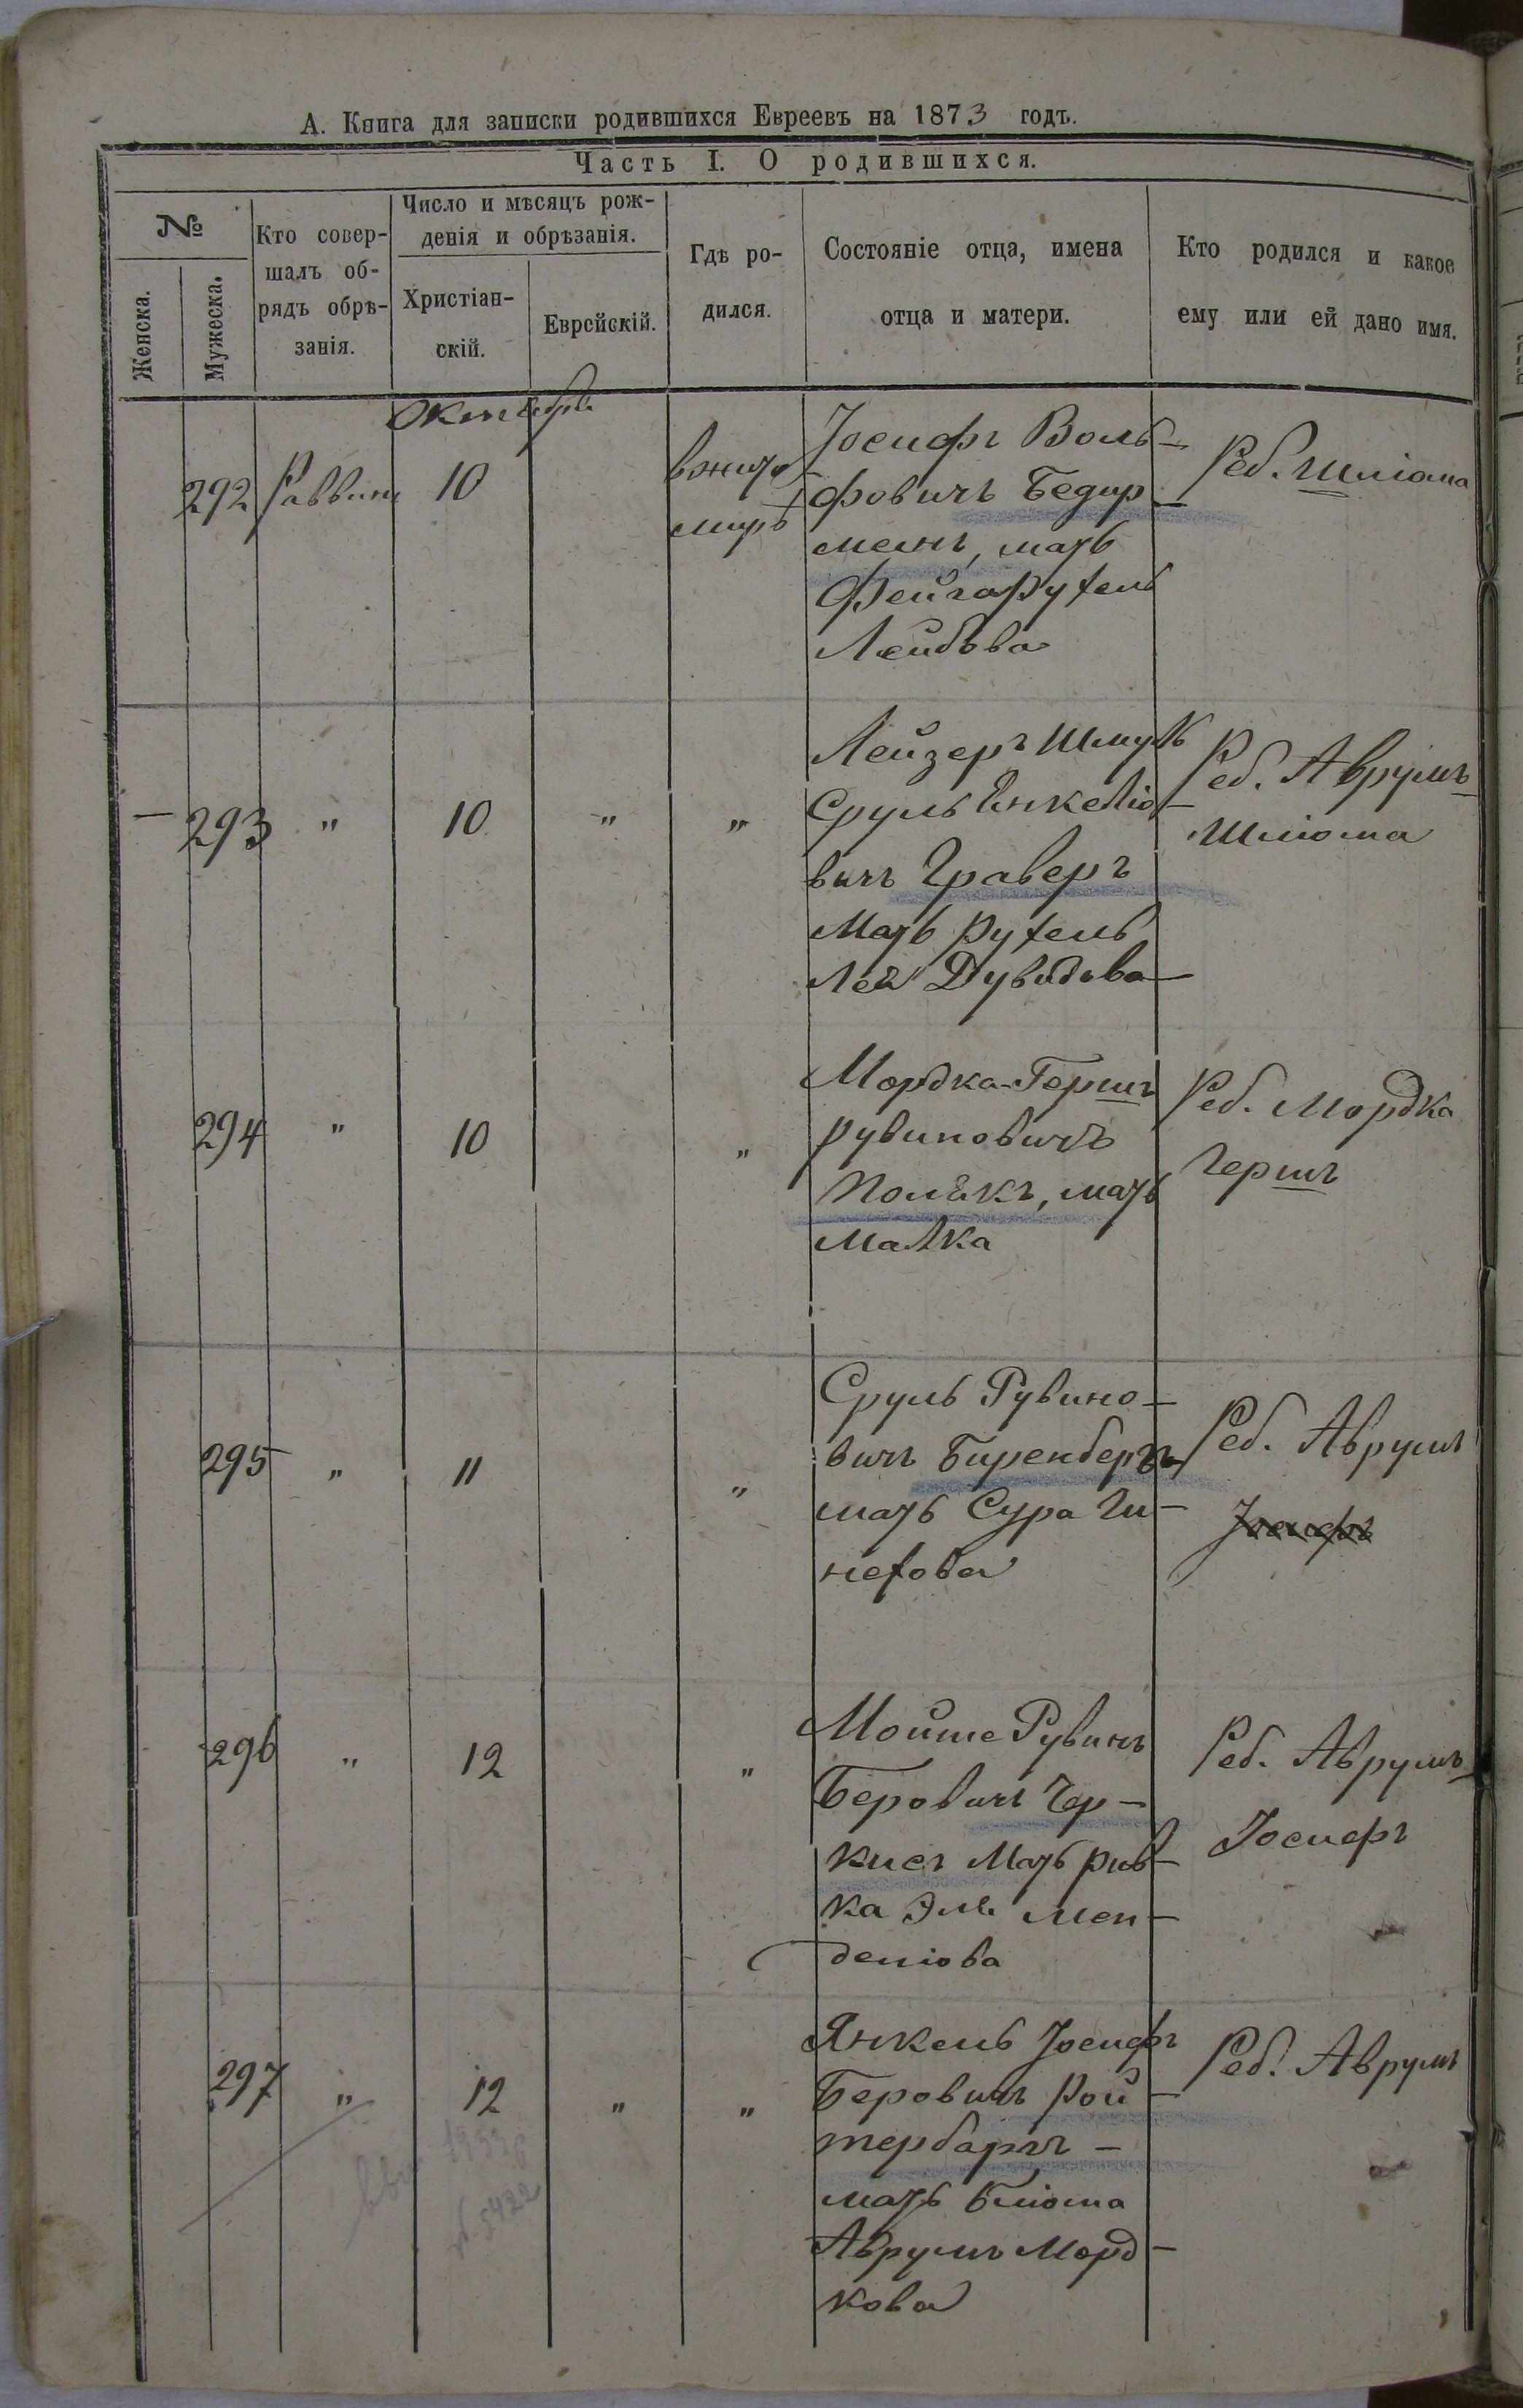 А. Книга для записки родившихся Евреевъ на 1873 годъ.
Часть I. О родившихся.
№
Женска.
Мужеска.
Кто совер-
шалъ об-
рядъ обрѣ-
занія.
Число и мѣсяцъ рож-
денія и обрѣзанія.
Христіан-
скій.
Еврейскій.
Гдѣ ро-
дился.
Состояніе отца, имена
отца и матери.
Кто родился и какое
ему или ей дано имя.
Октября
292
Раввинъ
10
вжито
мирѣ
Іосифъ Воль-
фовичъ Бедер-
менъ, мать
Фейга Рухель
Лейбова
Реб. Шлiома
293
"
10
"
"
Лейзеръ Шмуль
Сруль Янкелiо-
вичъ Граверъ
Мать Рухель
Лея Дувидова
Реб. Аврумъ
Шлiома
294
"
10
"
Мордка-Гершъ
Рувиновичъ
Полякъ, мать
Малка
Реб. Мордка
Гершъ
295
"
11
"
Сруль Рувино-
вичъ Биренбергъ
мать Сура Пи-
нехова
Реб. Аврумъ
Іосифъ
296
"
12
"
Мойше Рувинъ
Беровичъ Чер-
кисъ Мать Рив-
ка Эля Мен-
делiова
Реб. Аврумъ
Іосифъ
297
"
12
"
"
Янкель Іосифъ
Беровичъ Рой-
тербаргъ -
мать Блюма
Аврумъ Морд-
кова
Реб. Аврумъ
№ 5422